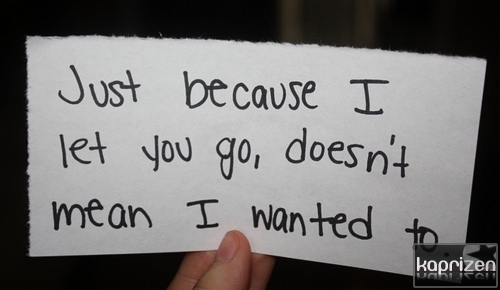 Just because I
let you go, doesn't
mean I wanted to
kaprizen